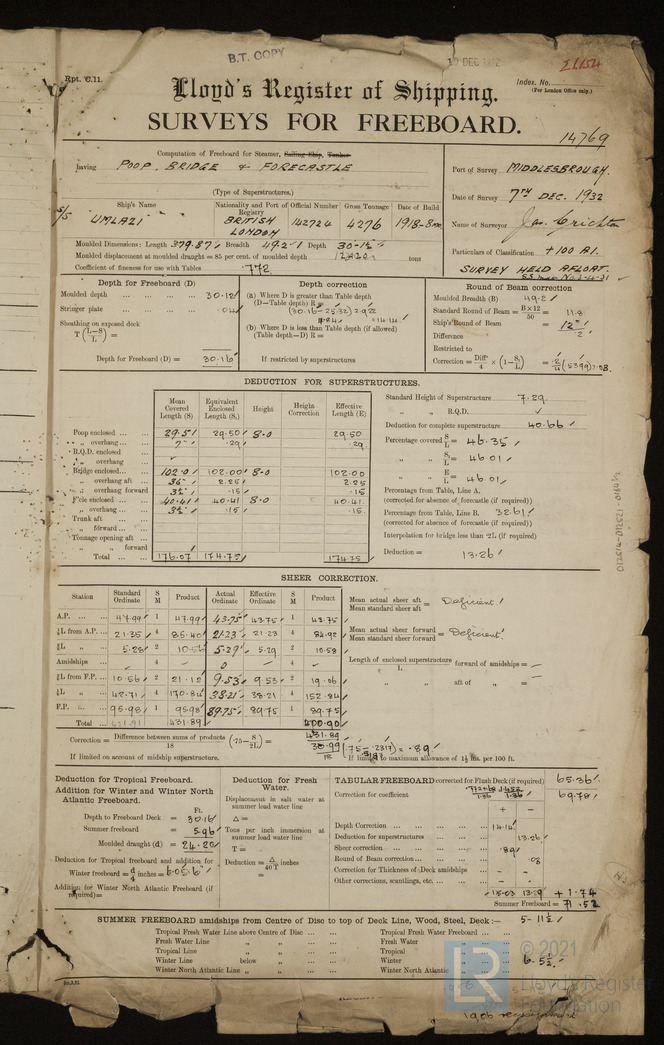 B.T. COPY
Rpt. C.11.
Index. No.
(For London Office only.)
Lloyd's Register of Shipping.
SURVEYS FOR FREEBOARD.
14769
Computation of Freeboard for Steamer, Sailing Ship, Tanker
having POOP, BRIDGE & FORECASTLE
(Type of Superstructures.)
Port of Survey MIDDLESBROUGH.
Date of Survey 7TH DEC. 1932
Name of Surveyor Jas. Crichton
Particulars of Classification +100 A1.
SURVEY HELD AFLOAT.
Ship's Name
Nationality and Port of Registry
Official Number
Gross Tonnage
Date of Build
S/S UMLAZI
BRITISH LONDON
142724
4276
1918-8
Moulded Dimensions: Length 379.87 Breadth 49.2 Depth 30-1½
Moulded displacement at moulded draught = 85 per cent. of moulded depth tons
Coefficient of fineness for use with Tables .772
Depth for Freeboard (D)
Moulded depth 30.12
Stringer plate .04
Sheathing on exposed deck
T (L-S/L) =
Depth for Freeboard (D) = 30.16
Depth correction
(a) Where D is greater than Table depth
(D—Table depth) R =
(30.16-25.32) 2.922
= 14.14
(b) Where D is less than Table depth (if allowed)
(Table depth—D) R =
If restricted by superstructures
Round of Beam correction
Moulded Breadth (B) 49.2
Standard Round of Beam = B×12/50 = 11.8
Ship's Round of Beam = 12
Difference .2
Restricted to
Correction = Diff/4 × (1-S/L) = .2/4 (.5399) .03
DEDUCTION FOR SUPERSTRUCTURES.
Mean Covered Length (S)
Equivalent Enclosed Length (S₁)
Height
Height Correction
Effective Length (E)
Poop enclosed 29.5 29.50 8.0 29.50
" overhang .29 .29
R.Q.D. enclosed
" overhang
Bridge enclosed 102.0 102.00 8.0 102.00
" overhang aft 2.25 2.25
" overhang forward .15 .15
F'cle enclosed 40.41 40.41 8.0 40.41
" overhang .15 .15
Trunk aft
" forward
Tonnage opening aft
" " forward
Total 176.07 174.75 174.75
Standard Height of Superstructure 7.29
" " R.Q.D.
Deduction for complete superstructure 40.66
Percentage covered S/L = 46.35
" " S₁/L = 46.01
" " E/L = 46.01
Percentage from Table, Line A.
(corrected for absence of forecastle (if required))
Percentage from Table, Line B. 32.61
(corrected for absence of forecastle (if required))
Interpolation for bridge less than .2L (if required)
Deduction = 13.26
SHEER CORRECTION.
Station
Standard Ordinate
S M
Product
Actual Ordinate
Effective Ordinate
S M
Product
A.P. 47.99 1 47.99 43.75 43.75 1 43.75
⅙L from A.P. 21.35 4 85.40 21.23 21.23 4 84.92
⅓L " 5.28 2 10.56 5.29 5.29 2 10.58
Amidships - 4 - 0 - 4 -
⅓L from F.P. 10.56 2 21.12 9.53 9.53 2 19.06
⅙L " 42.71 4 170.84 38.21 38.21 4 152.84
F.P. 95.98 1 95.98 89.75 89.75 1 89.75
Total 431.89 400.90
431.89
Mean actual sheer aft / Mean standard sheer aft = Deficient
Mean actual sheer forward / Mean standard sheer forward = Deficient
Length of enclosed superstructure / L forward of amidships = -
" " aft of " = -
Correction = Difference between sums of products / 18 (.75 - S/2L) = 30.99/18 (.75-.2317) = .89
If limited on account of midship superstructure.
If limited to maximum allowance of 1½ ins. per 100 ft.
Deduction for Tropical Freeboard.
Addition for Winter and Winter North Atlantic Freeboard.
Ft.
Depth to Freeboard Deck = 30.16
Summer freeboard = 5.96
Moulded draught (d) = 24.20
Deduction for Tropical freeboard and addition for
Winter freeboard = d/4 inches = 6.05
Addition for Winter North Atlantic Freeboard (if required) =
Deduction for Fresh Water.
Displacement in salt water at summer load water line
Δ =
Tons per inch immersion at summer load water line
T =
Deduction = Δ/40T inches
=
TABULAR FREEBOARD corrected for Flush Deck (if required) 65.36
Correction for coefficient 69.78
+ -
Depth Correction 14.14
Deduction for superstructures 13.26
Sheer correction .89
Round of Beam correction .03
Correction for Thickness of Deck amidships - -
Other corrections, scantlings, etc. - -
15.03 13.29 +1.74
Summer Freeboard = 71.52
SUMMER FREEBOARD amidships from Centre of Disc to top of Deck Line, Wood, Steel, Deck:— 5-11½
Tropical Fresh Water Line above Centre of Disc
Tropical Fresh Water Freeboard
Fresh Water Line "
Fresh Water "
Tropical Line "
Tropical "
Winter Line below "
Winter " 6.5½
Winter North Atlantic Line "
Winter North Atlantic "
012514-012521-0144½
LR
© 2021
Lloyd's Register
Foundation